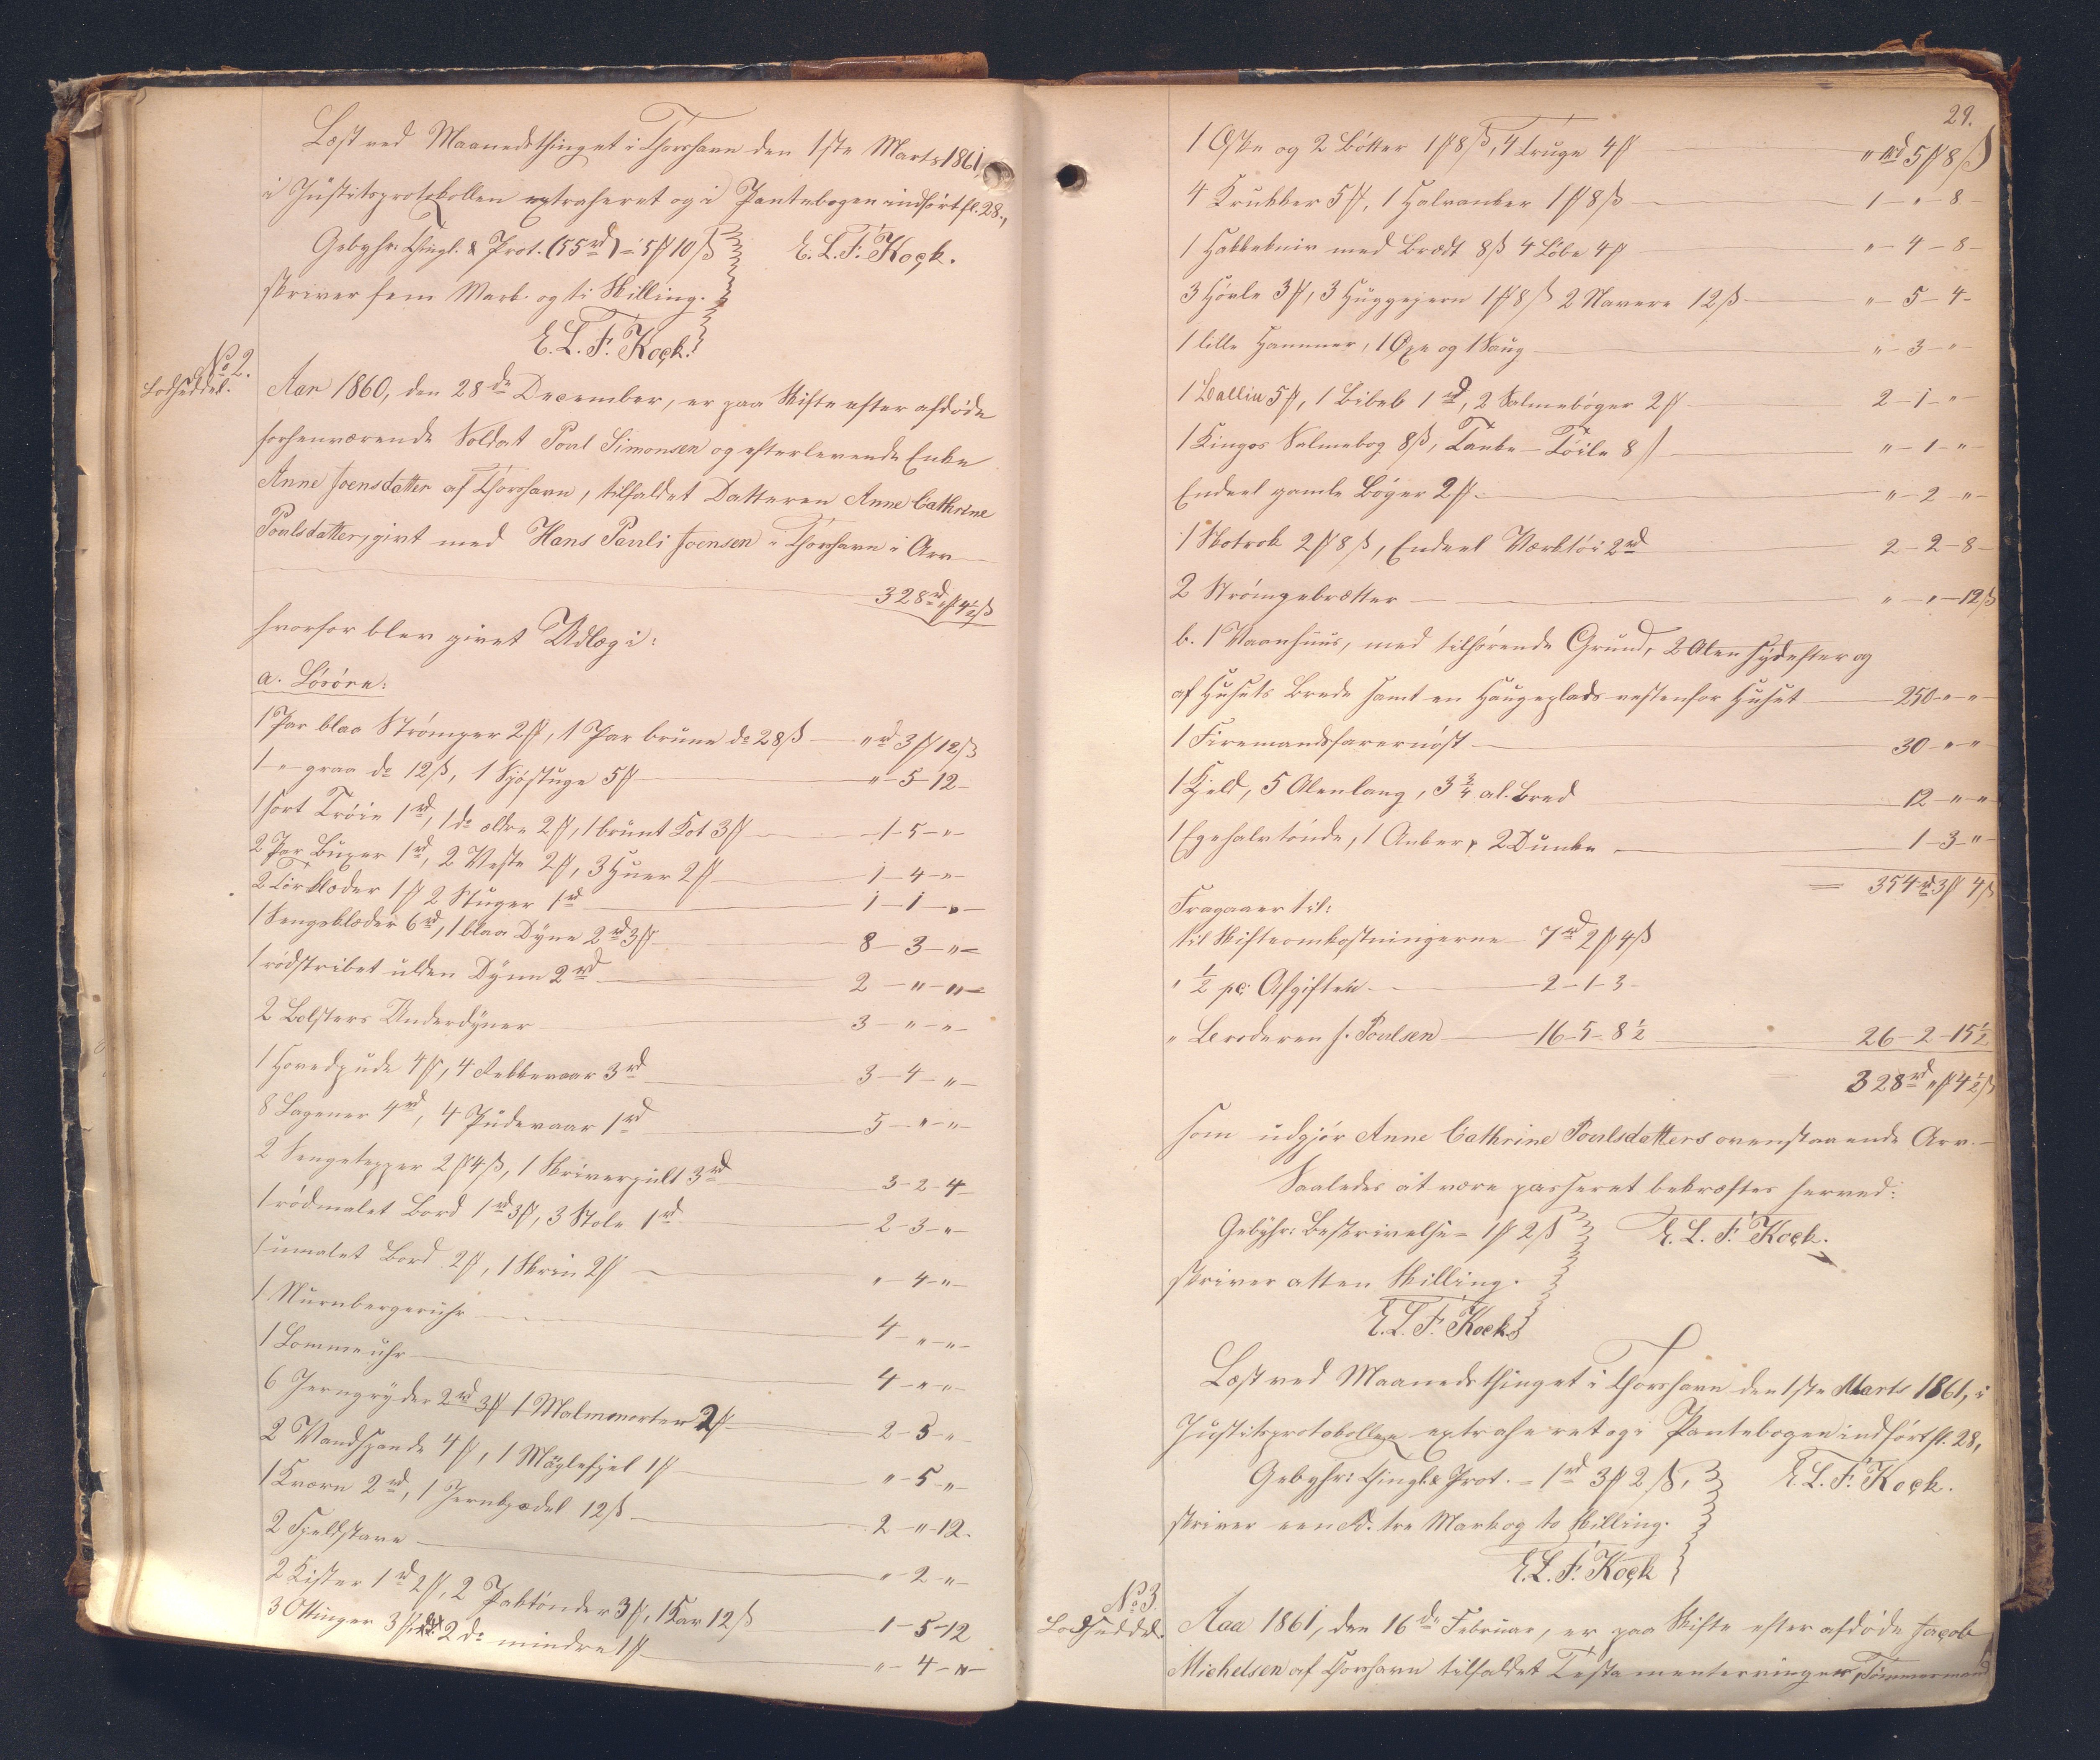 Læst ved Maanedsthinget i Thorshavn den 1ste Marts 1861,
i Justitsprotokollen extraheret og i Pantebogen indført fl. 28.,
Gebyhr: Thingl. & Prot. (55 rd) = 5 # 10 ß E. L. F. Kock.
skriver fem Mark og ti Skilling.
E. L. F. Kock.
No 2.
Lodseddel.
Aar 1860, den 28de December, er paa Skifte efter afdøde
forhenværende Soldat Poul Simonsen og efterlevende Enke
Anne Joensdatter af Thorshavn, tilfaldet Datteren Anne Cathrine
Poulsdatter, givt med Hans Pauli Joensen i Thorshavn i Arv
328 rd " # 4½ ß
hvorfor blev givet Udlæg i:
a. Løsøre:
1 Par blaa Strømper 2 #, 1 Par brune do 28 ß — " rd 3 # 12 ß
1 — " graa do 12 ß, 1 Sjøstuge 5 # — " - 5 - 12 -
1 sort Trøie 1 rd, 1 do ældre 2 #, 1 brunt Kot 3 # — 1 - 5 - " -
2 Par Buxer 1 rd, 2 Veste 2 #, 3 Huer 2 # — 1 - 4 - " -
2 Tørklæder 1 # 2 Stuger 1 rd — 1 - 1 - " -
1 Sengeklæder 6 rd, 1 blaa Dyne 2 rd 3 # — 8 - 3 - " -
1 rødstribet ulden Dyne 2 rd — 2 - " - " -
2 Bolsters Underdyner — 3 - " - " -
1 Hovedpude 4 #, 4 Dekkevaar 3 rd — 3 - 4 - " -
8 Lagener 4 rd, 4 Pudevaar 1 rd — 5 - " - " -
2 Sengetepper 2 # 4 ß, 1 Skriverpult 3 rd — 3 - 2 - 4 -
1 rødmalet Bord 1 rd 3 #, 3 Stole 1 rd — 2 - 3 - " -
1 umalet Bord 2 #, 1 Skrin 2 # — " - 4 - " -
1 Nurnbergeruhr — 4 - " - " -
1 Lommeuhr — 4 - " - " -
6 Jerngryder 2 rd 3 # 1 Malmmorter 2 # — 2 - 5 - " -
2 Vandspande 4 #, 1 Møglefjel 1 # — " - 5 - " -
1 Kværn 2 rd, 1 Jernspadel 12 ß — 2 - " - 12.
2 Fjeldstave — " - 2 - " -
2 Kister 1 rd 2 #, 2 Paktønder 3 #, 1 Kar 12 ß — 1 - 5 - 12
3 Ottinger 3 #, 2 do mindre 1 # — " - 4 - " -
29.
1 Øske og 2 Bøtter 1 # 8 ß, 4 Truge 4 # — " rd 5 # 8 ß
4 Krukker 5 #, 1 Halvanker 1 # 8 ß — 1 - " - 8 -
1 Hakkekniv med Brædt 8 ß 4 Løbe 4 # — " - 4 - 8 -
3 Høvle 3 #, 3 Huggejern 1 # 8 ß 2 Navere 12 ß — " - 5 - 4 -
1 lille Hammer, 1 Øxe og 1 Saug — " - 3 - " -
1 Ballin 5 #, 1 Bibel 1 rd, 2 Salmebøger 2 # — 2 - 1 - " -
1 Kingos Salmebog 8 ß, Tanke-Tøile 8 ß — " - 1 - " -
Endeel gamle Bøger 2 # — " - 2 - " -
1 Slotrok 2 # 8 ß, Endeel Værktøi 2 rd — 2 - 2 - 8 -
2 Strømpebrætter — " - " - 12 ß
b. 1 Vaanhuus, med tilhørende Grund, 2 Alen sydefter og
af Husets Brede samt en Haugeplads vestenfor Huset — 250 - " - "
1 Firemandsfarernøst — 30 - " - "
1 Hjeld, 5 Alen lang, 3¾ al. bred — 12 - " - "
1 Egehalvtønde, 1 Anker, 2 Dunke — 1 - 3 - "
= 354 rd 3 # 4 ß
Fragaaer til:
til Skifteomkostningerne 7 rd 2 # 4 ß
" ½ pc. Afgiften — 2 - 1 - 3 -
" Broderen J. Poulsen — 16 - 5 - 8½ — 26 - 2 - 15½
328 rd " # 4½ ß
som udgjør Anne Cathrine Poulsdatters ovenstaaende Arv. —
Saaledes at være passeret bekræftes herved:
Gebyhr: Beskrivelse = 1 # 2 ß E. L. F. Kock.
skriver atten Skilling.
E. L. F. Kock
Læst ved Maanedsthinget i Thorshavn den 1ste Marts 1861, i
Justitsprotokollen extraheret og i Pantebogen indført fl. 28,
Gebyhr: Thingl. & Prot. = 1 rd 3 # 2 ß, E. L. F. Kock.
skriver een Rd. tre Mark og to Skilling.
E. L. F. Kock
No 3.
Lodseddel.
Aaa 1861, den 16de Februar, er paa Skifte efter afdøde Jacob
Michelsen af Thorshavn tilfaldet Testamentarvingen, Tømmermand